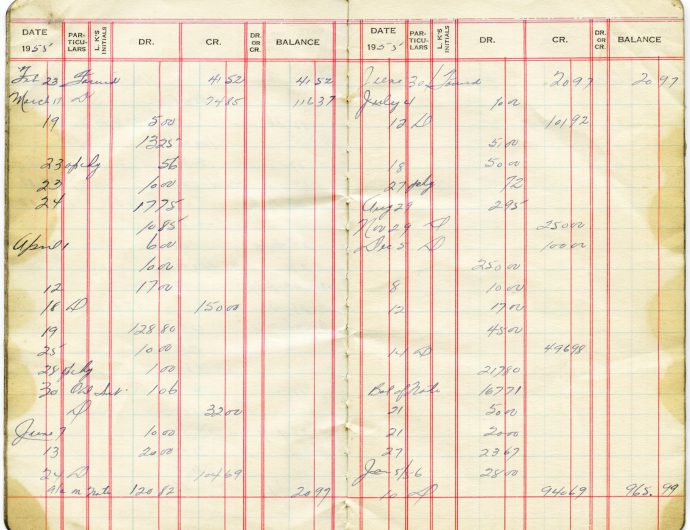 DATE PAR- TICU- LARS L. K'S INITIALS DR. CR. DR. OR CR. BALANCE
1955
Feb 23 Forwd 4152 4152
March 17 D 7485 11637
19 500
1325
23 opchg 56
23 1000
24 1775
1085
April 1 600
1000
12 1700
18 D 15000
19 12880
25 1000
28 pchg 100
30 Int. 106
D 3200
June 7 1000
13 2000
24 D 10469
on Note 12082 2097
DATE PAR- TICU- LARS L. K'S INITIALS DR. CR. DR. OR CR. BALANCE
1955
June 30 Forwd 2097 2097
July 4 1000
12 D 10192
5100
18 5000
27 pchg 72
Aug 29 295
Nov 29 D 25000
Dec 5 D 10000
25000
8 1000
12 1700
4500
D 49698
21780
Bal of Note 16771
21 5000
21 2000
27 2367
Jan 5/56 2800
10 D 94069 965.99